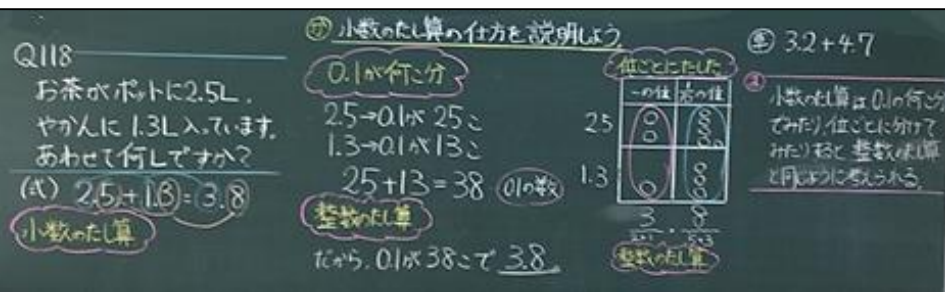 Q118
お茶がポットに2.5L、
やかんに1.3L入っています。
あわせて何Lですか?
(式) 2.5+1.3=3.8
小数のたし算
小数のたし算の仕方を説明しよう
0.1が何こ分
2.5→0.1が25こ
1.3→0.1が13こ
25+13=38 0.1の数
整数のたし算
だから、0.1が38こで3.8。
位ごとにたした
一の位 1/10の位
2.5
1.3
3 . 8
2+1 5+3
整数のたし算
3.2+4.7
小数のたし算は0.1の何こ分
でみたり、位ごとに分けて
みたりすると整数のたし算
と同じように考えられる。